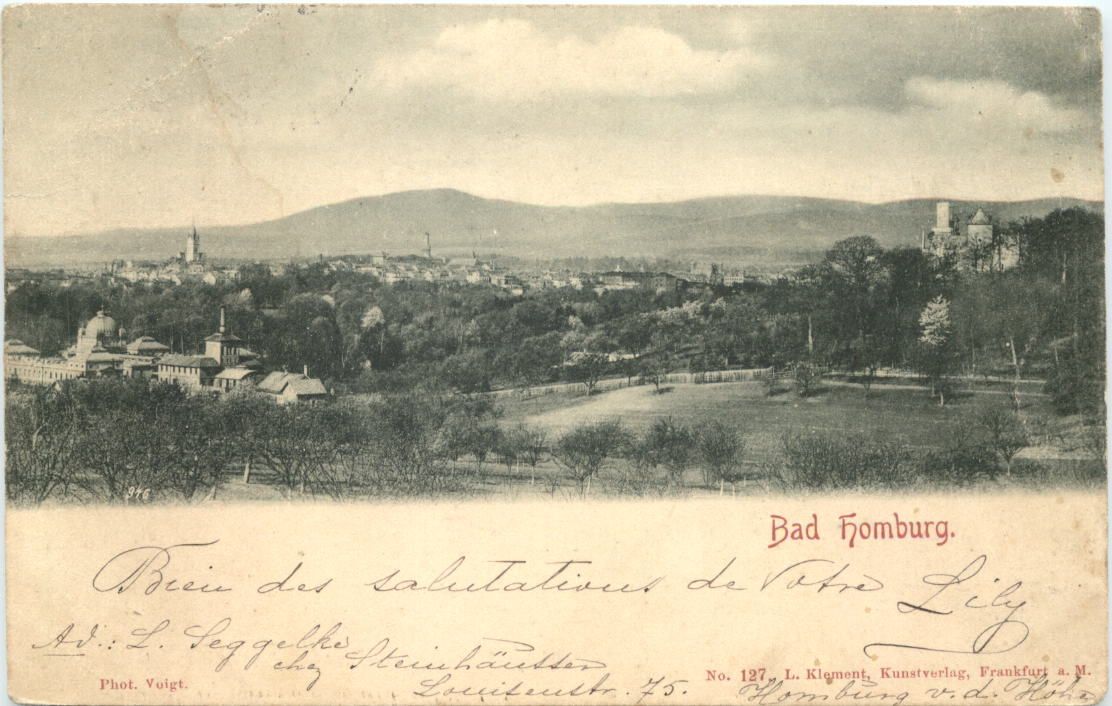 946
Bad Homburg.
Bien des salutations de Votre Lily
Ad.: L. Seggelke
chez Steinhäusser
Louisenstr. 75.
Homburg v. d. Höhe
Phot. Voigt.
No. 127. L. Klement, Kunstverlag, Frankfurt a. M.